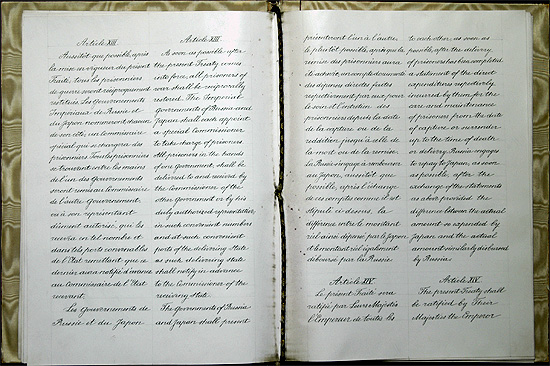 Article XIII.
Aussitôt que possible, après
la mise en vigueur du présent
Traité, tous les prisonniers
de guerre seront réciproquement
restitués. Les Gouvernements
Impériaux de Russie et
du Japon nommeront chacun
de son côté un Commissaire
spécial qui se chargera des
prisonniers. Tous les prisonniers
se trouvant entre les mains
de l'un des Gouvernements
seront remis au Commissaire
de l'autre Gouvernement
ou à son représentant
dûment autorisé, qui le
recevra en tel nombre et
dans tels ports convenables
de l'Etat remettant que ce
dernier aura notifiés d'avance
au Commissaire de l'Etat
recevant.
Les Gouvernements de
Russie et du Japon
Article XIII.
As soon as possible after
the present Treaty comes
into force, all prisoners of
war shall be reciprocally
restored. The Imperial
Governments of Russia and
Japan shall each appoint
a special Commissioner
to take charge of prisoners.
All prisoners in the hands
of one Government shall be
delivered to and received by
the Commissioner of the
other Government or by his
duly authorized representative,
in such convenient numbers
and at such convenient
ports of the delivering State
as such delivering State
shall notify in advance
to the Commissioner of the
receiving State.
The Governments of Russia
and Japan shall present
présenteront l'un à l'autre,
le plus tôt possible, après que la
remise des prisonniers aura
été achevée, un compte documenté
des dépenses directes faites
respectivement par eux pour
le soin et l'entretien des
prisonniers depuis la date
de la capture ou de la
reddition jusqu'à celle de
la mort ou de la remise.
La Russie s'engage à rembourser
au Japon, aussitôt que
possible, après l'échange
de ces comptes comme il est
stipulé ci-dessus, la
différence entre le montant
réel ainsi dépensé par le Japon
et le montant réel également
déboursé par la Russie.
Article XIV.
Le présent Traité sera
ratifié par Leurs Majestés
l'Empereur de toutes les
to each other, as soon as
possible, after the delivery
of prisoners has been completed,
a statement of the direct
expenditures respectively
incurred by them for the
care and maintenance
of prisoners from the date
of capture or surrender
up to the time of death
or delivery. Russia engages
to repay to Japan, as soon
as possible after the
exchange of the statements
as above provided, the
difference between the actual
amount so expended by
Japan and the actual
amount similarly disbursed
by Russia.
Article XIV.
The present Treaty shall
be ratified by Their
Majesties the Emperor